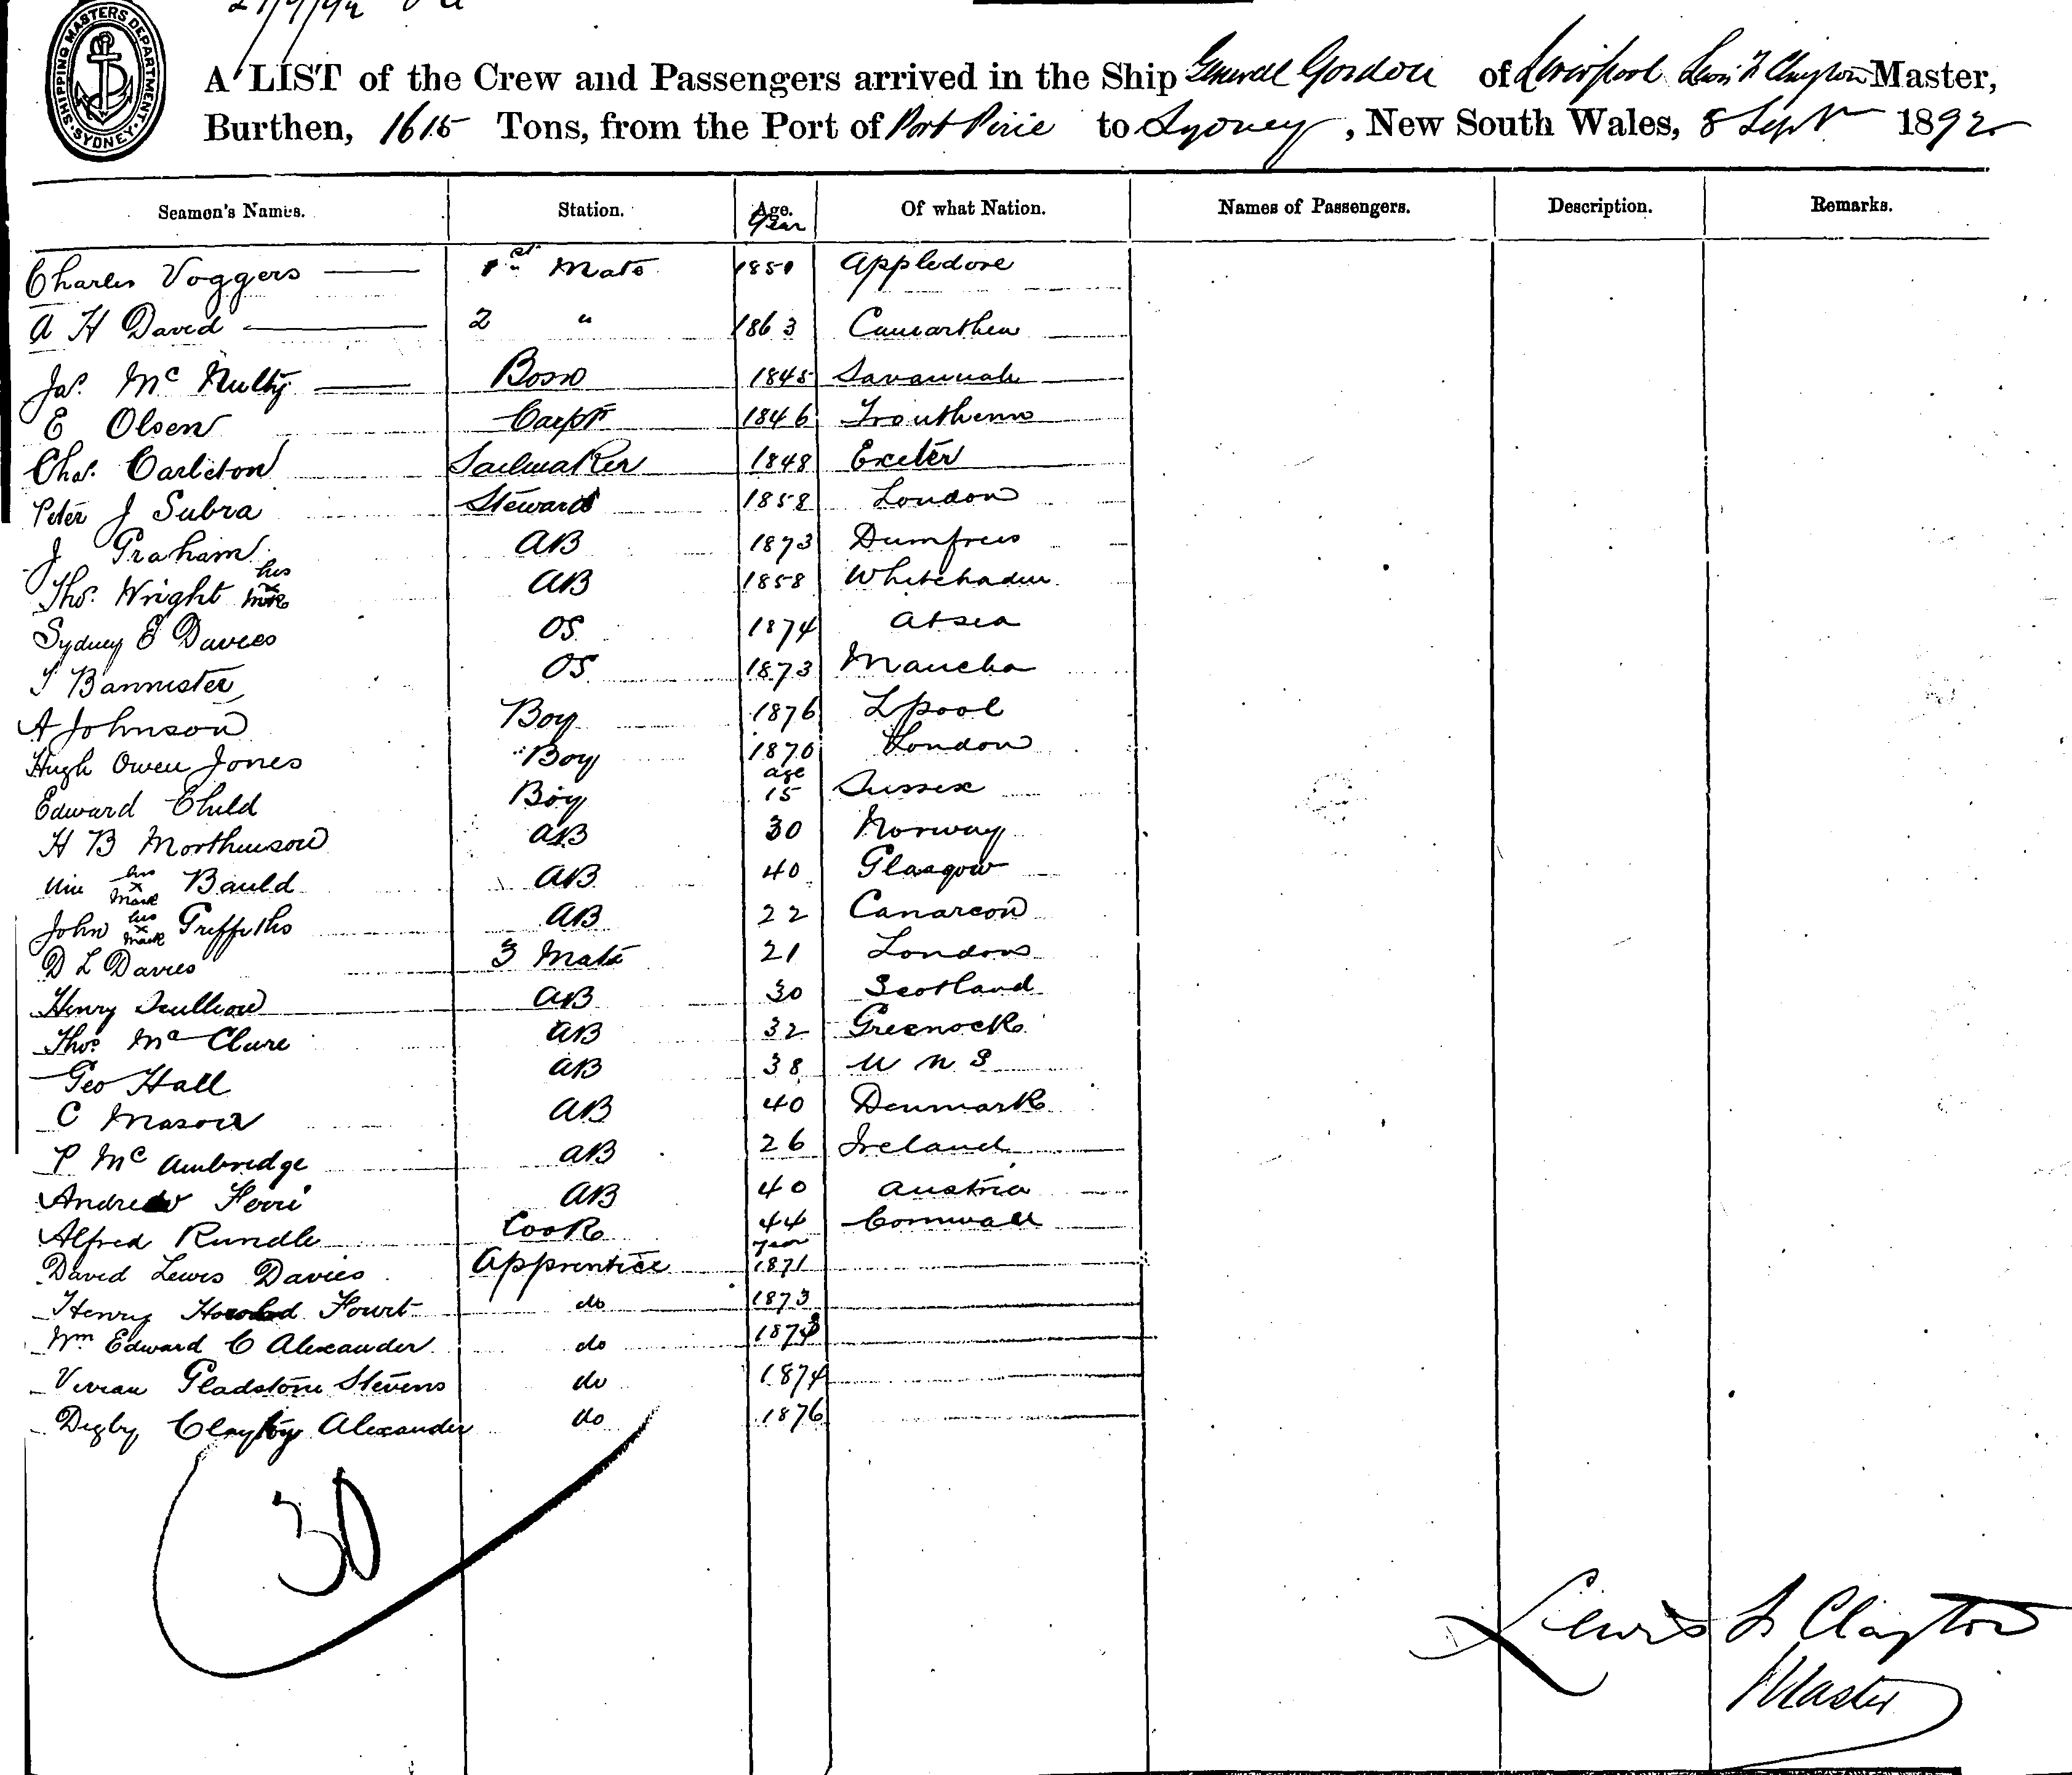 SHIPPING MASTERS DEPARTMENT. SYDNEY.
A LIST of the Crew and Passengers arrived in the Ship General Gordon of Liverpool Lewis F Clayton Master,
Burthen, 1615 Tons, from the Port of Port Pirie to Sydney, New South Wales, 8 Sept 1892
Seamen's Names. Station. Age. Of what Nation. Names of Passengers. Description. Remarks.
Year
Charles Voggers 1st Mate 1850 Appledore
A H David 2 " 1863 Camarthen
Jas. Mc Nulty Bosn 1845 Savannah
E Olsen Carpt 1846
Chas. Carleton Sailmaker 1848 Exeter
Peter J Subra Steward 1858 London
J Graham AB 1873 Dumfries
Thos. Wright his x mark AB 1858 Whitehaven
Sydney E Davies OS 1874 At sea
Bannister OS 1873
A Johnson Boy 1876 Lpool
Hugh Owen Jones Boy 1870 London
Edward Child Boy age 15 Sussex
H B Morthenson AB 30 Norway
Wm his x mark Bauld AB 40 Glasgow
John his x mark Griffiths AB 22 Canarvon
D L Davies 3 Mate 21 London
Henry AB 30 Scotland
Thos Mc Clure AB 32 Greenock
Geo Hall AB 38 U N S
C Mason AB 40 Denmark
P Mc Ambridge AB 26 Ireland
Andrew Ferri AB 40 Austria
Alfred Rundle Cook 44 Cornwall
year
David Lewis Davies Apprentice 1871
Henry Harold do 1873
Wm Edward C Alexander do
Vivian Gladstone Stevens do 1874
Digby Alexander do 1876
30
Lewis F Clayton
Master